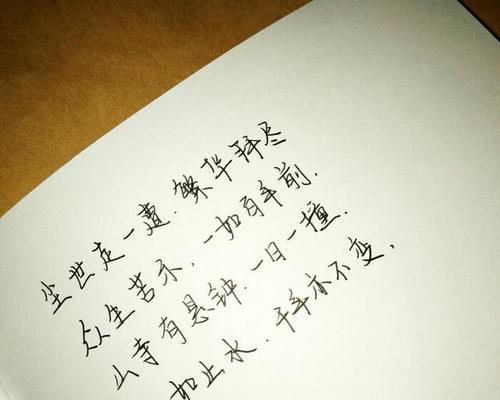 尘世走一遭.繁华拜尽
众生苦示,一如百年前.
山寺有悬钟.一日一撞.
如止水.千年亦不变,